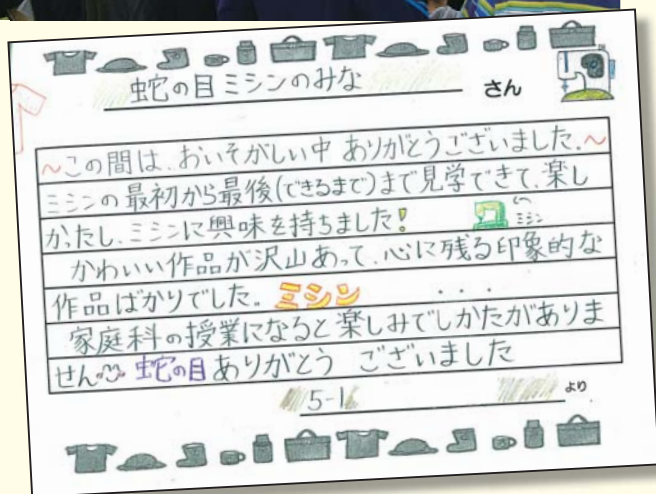 蛇の目ミシンのみな さん
～この間は、おいそがしい中 ありがとうございました。～
ミシンの最初から最後(できるまで)まで見学できて、楽し
かったし、ミシンに興味を持ちました!
ミシン
かわいい作品が沢山あって、心に残る印象的な
作品ばかりでした。ミシン ・・・
家庭科の授業になると楽しみでしかたがありま
せん 蛇の目ありがとう ございました
5-1 より